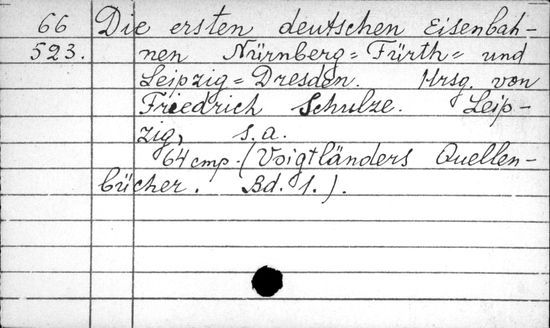 66 Die ersten deutschen Eisenbah-
523. nen Nürnberg=Fürth= und
Leipzig=Dresden. Hrsg. von
Friedrich Schulze. Leip-
zig, s.a.
64 стр. (Voigtländers Quellen-
bücher. Bd. 1.).